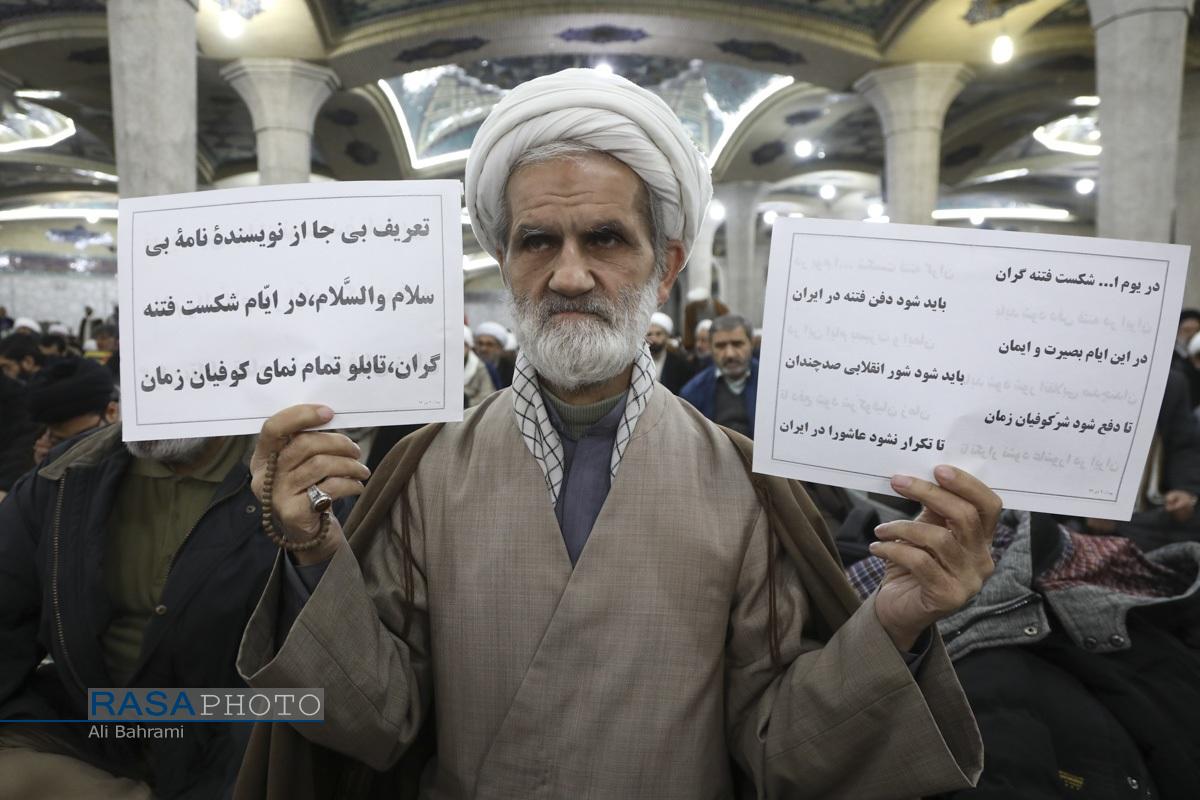 تعریف بی جا از نویسندهٔ نامهٔ بی
سلام والسَّلام،در ایّام شکست فتنه
گران،تابلو تمام نمای کوفیان زمان
در یوم ا... شکست فتنه گران
باید شود دفن فتنه در ایران
در این ایام بصیرت و ایمان
باید شود شور انقلابی صدچندان
تا دفع شود شرکوفیان زمان
تا تکرار نشود عاشورا در ایران
RASAPHOTO
Ali Bahrami